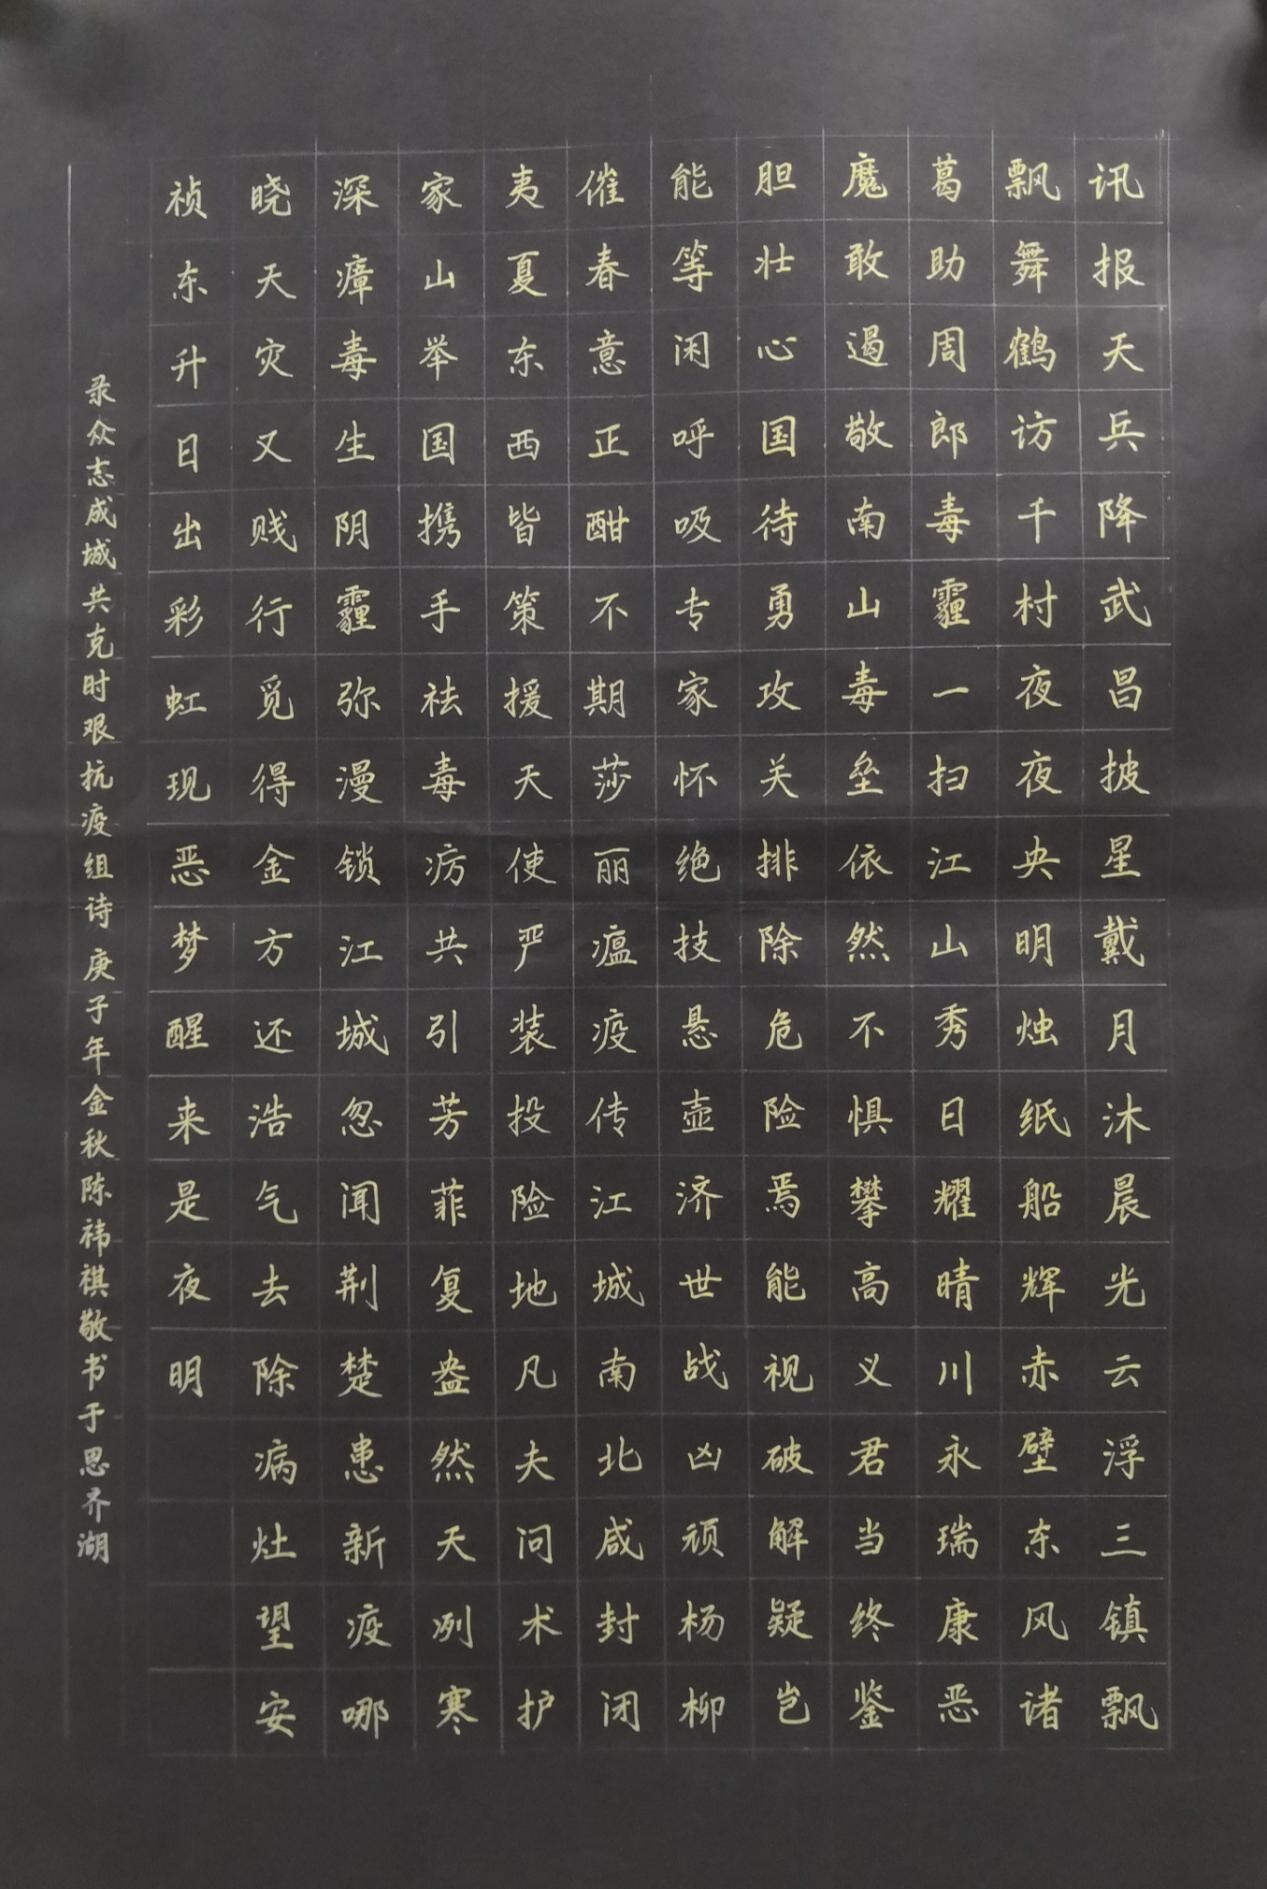 讯报天兵降武昌披星戴月沐晨光云浮三镇飘
飘舞鹤访千村夜夜央明烛纸船辉赤壁东风诸
葛助周郎毒霾一扫江山秀日耀晴川永瑞康恶
魔敢遏敬南山毒垒依然不惧攀高义君当终鉴
胆壮心国待勇攻关排除危险焉能视破解疑岂
能等闲呼吸专家怀绝技悬壶济世战凶顽杨柳
催春意正酣不期莎丽瘟疫传江城南北咸封闭
夷夏东西皆策援天使严装投险地凡夫问术护
家山举国携手祛毒疠共引芳菲复盎然天冽寒
深瘴毒生阴霾弥漫锁江城忽闻荆楚患新疫哪
晓天灾又贱行觅得金方还浩气去除病灶望安
祯东升日出彩虹现恶梦醒来是夜明
录众志成城共克时艰抗疫组诗庚子年金秋陈祎祺敬书于思齐湖